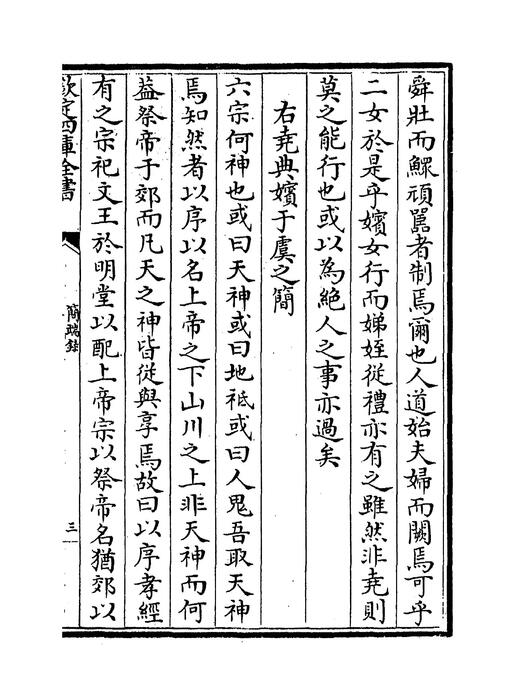 舜壯而鰥頑嚚者制焉爾也人道始夫婦而闕焉可乎
二女於是乎嬪女行而娣姪從禮亦有之雖然非堯則
莫之能行也或以為絕人之事亦過矣
右堯典嬪于虞之簡
六宗何神也或曰天神或曰地祇或曰人鬼吾取天神
焉知然者以序以名上帝之下山川之上非天神而何
葢祭帝于郊而凡天之神皆從與享焉故曰以序孝經
有之宗祀文王於明堂以配上帝宗以祭帝名猶郊以
欽定四庫全書
簡端錄
三